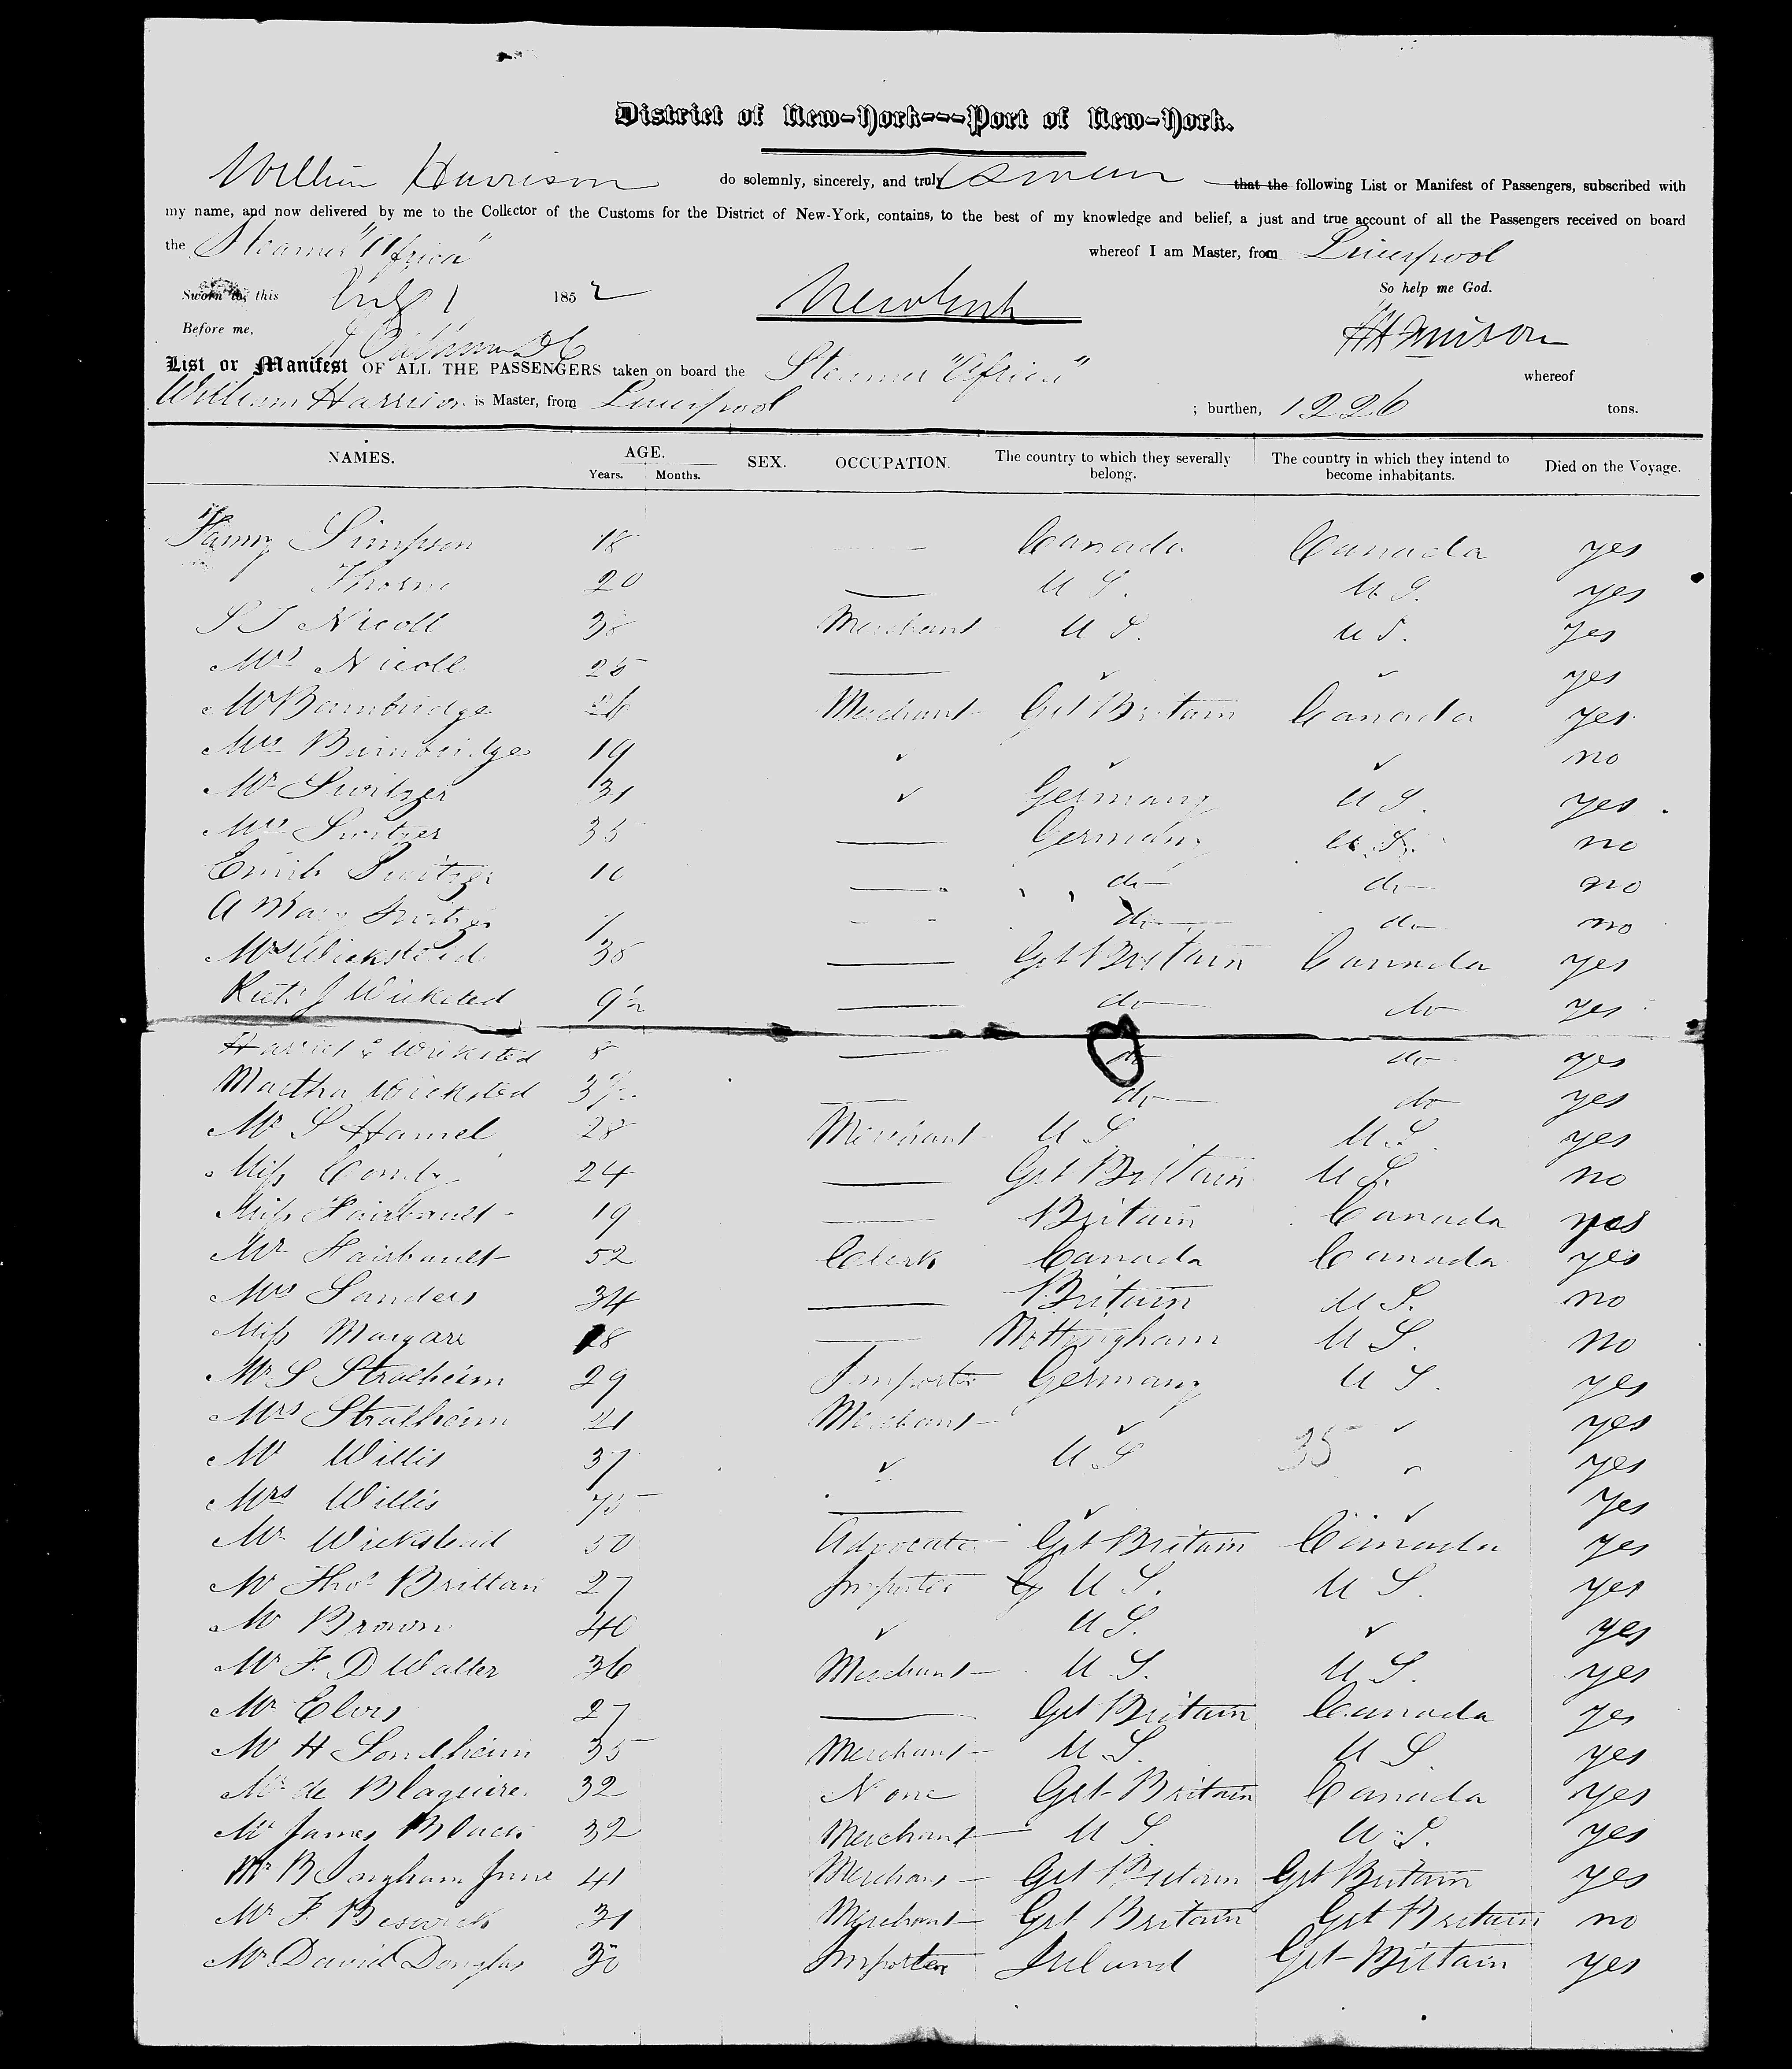 District of New-York---Port of New-York.
William Harrison do solemnly, sincerely, and truly Swear that the following List or Manifest of Passengers, subscribed with
my name, and now delivered by me to the Collector of the Customs for the District of New-York, contains, to the best of my knowledge and belief, a just and true account of all the Passengers received on board
the Steamer "Africa" whereof I am Master, from Liverpool
Sworn to, this July 1 1852 New York So help me God.
Before me, Harrison
List or Manifest OF ALL THE PASSENGERS taken on board the Steamer "Africa" whereof
William Harrison is Master, from Liverpool ; burthen, 1226 tons.
NAMES. AGE. Years. Months. SEX. OCCUPATION. The country to which they severally belong. The country in which they intend to become inhabitants. Died on the Voyage.
Fanny Simpson 18 — Canada Canada yes
Thorne 20 — U S. U. S. yes
S J Nicoll 38 Merchant U S. U S. yes
Mrs Nicoll 25 — ✓ ✓ yes
Mr Bambridge 26 Merchant Grt Britain Canada yes
Mrs Bambridge 19 ✓ ✓ ✓ no
Mr Switzer 31 ✓ Germany U S. yes
Mrs Switzer 35 — Germany U. S. no
Emile Switzer 10 — do do no
A Mary Switzer — do do no
Mrs Wickstead 36 — Grt Britain Canada yes
J Wicksted 9½ — do do yes
Harriet Wicksted 8 — do do yes
Martha Wicksted 3½ — do do yes
Mr S Hamel 28 Merchant U S U. S. yes
Miss 24 — Grt Britain U S. no
Miss Fairbault 19 — Britain Canada yes
Mr Fairbault 52 Clerk Canada Canada yes
Mrs Sanders 34 — Britain U S. no
Miss Margare 18 — Nottingham U S. no
Mr S Stralheim 29 Importer Germany U S. yes
Mrs Stralheim 21 Merchant ✓ ✓ yes
Mr Willis 37 ✓ U S 35 yes
Mrs Willis 75 — ✓ ✓ yes
Mr Wickstead 50 Advocate Grt Britain Canada yes
Mr Thos Brittan 27 Importer U S. U S. yes
Mr Brown 40 ✓ U S. ✓ yes
Mr F. D Walter 36 Merchant U S. U S. yes
Mr Elvis 27 — Grt Britain Canada yes
Mr H Sondheim 35 Merchant U S. U S yes
Mr de Blaquire 32 None Grt Britain Canada yes
Mr James Black 32 Merchant U S. U S. yes
Mr B Ingham June 41 Merchant Grt Britain Grt Britain yes
Mr F. Beswick 31 Merchant Grt Britain Grt Britain no
Mr David Douglas 30 Importer Ireland Grt Britain yes